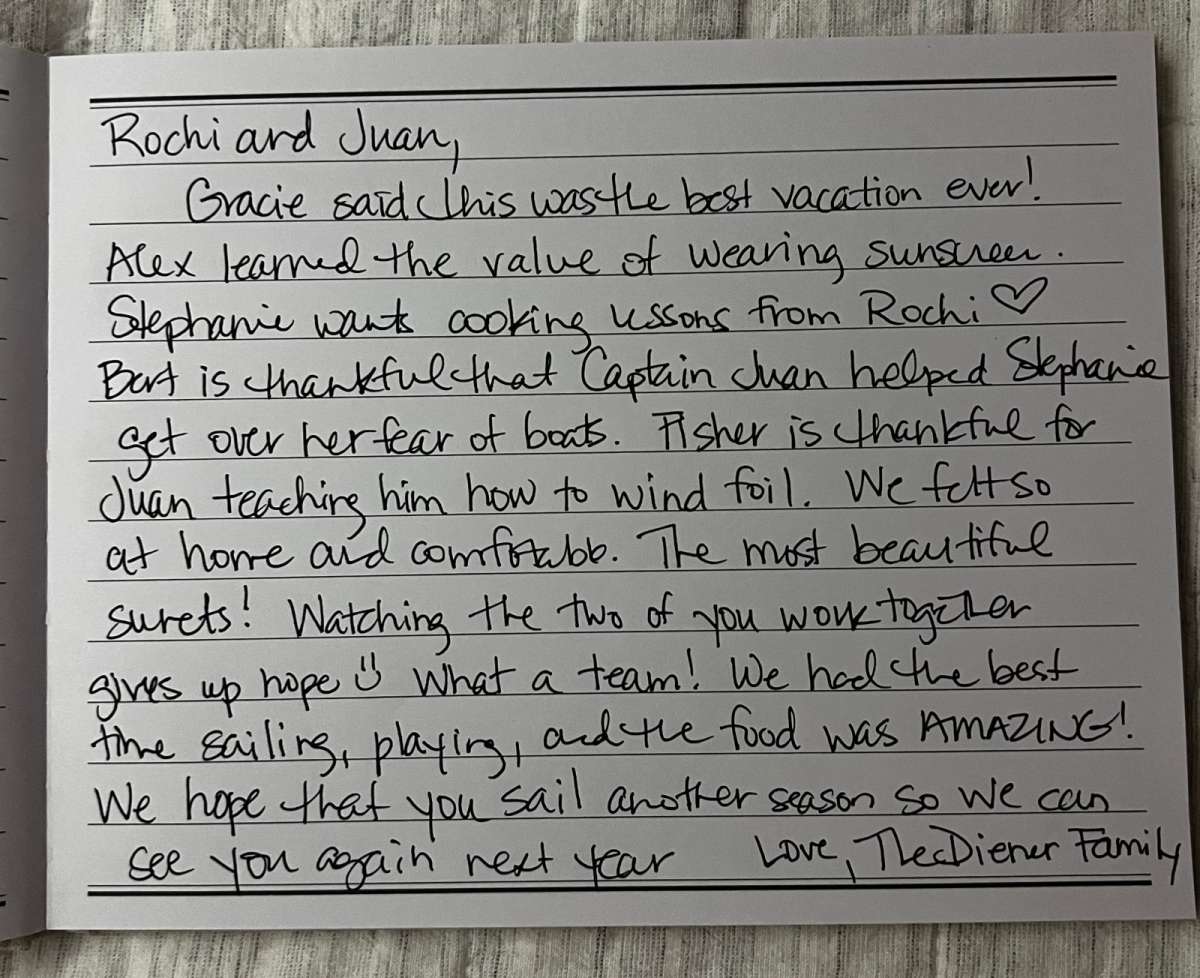 Rochi and Juan,
Gracie said this was the best vacation ever!
Alex learned the value of wearing sunscreen.
Stephanie wants cooking lessons from Rochi ♡
Bart is thankful that Captain Juan helped Stephanie
get over her fear of boats. Fisher is thankful for
Juan teaching him how to wind foil. We felt so
at home and comfortable. The most beautiful
! Watching the two of you work together
gives up hope :) What a team! We had the best
time sailing, playing, and the food was AMAZING!
We hope that you sail another season so we can
see you again next year Love, The Diener Family